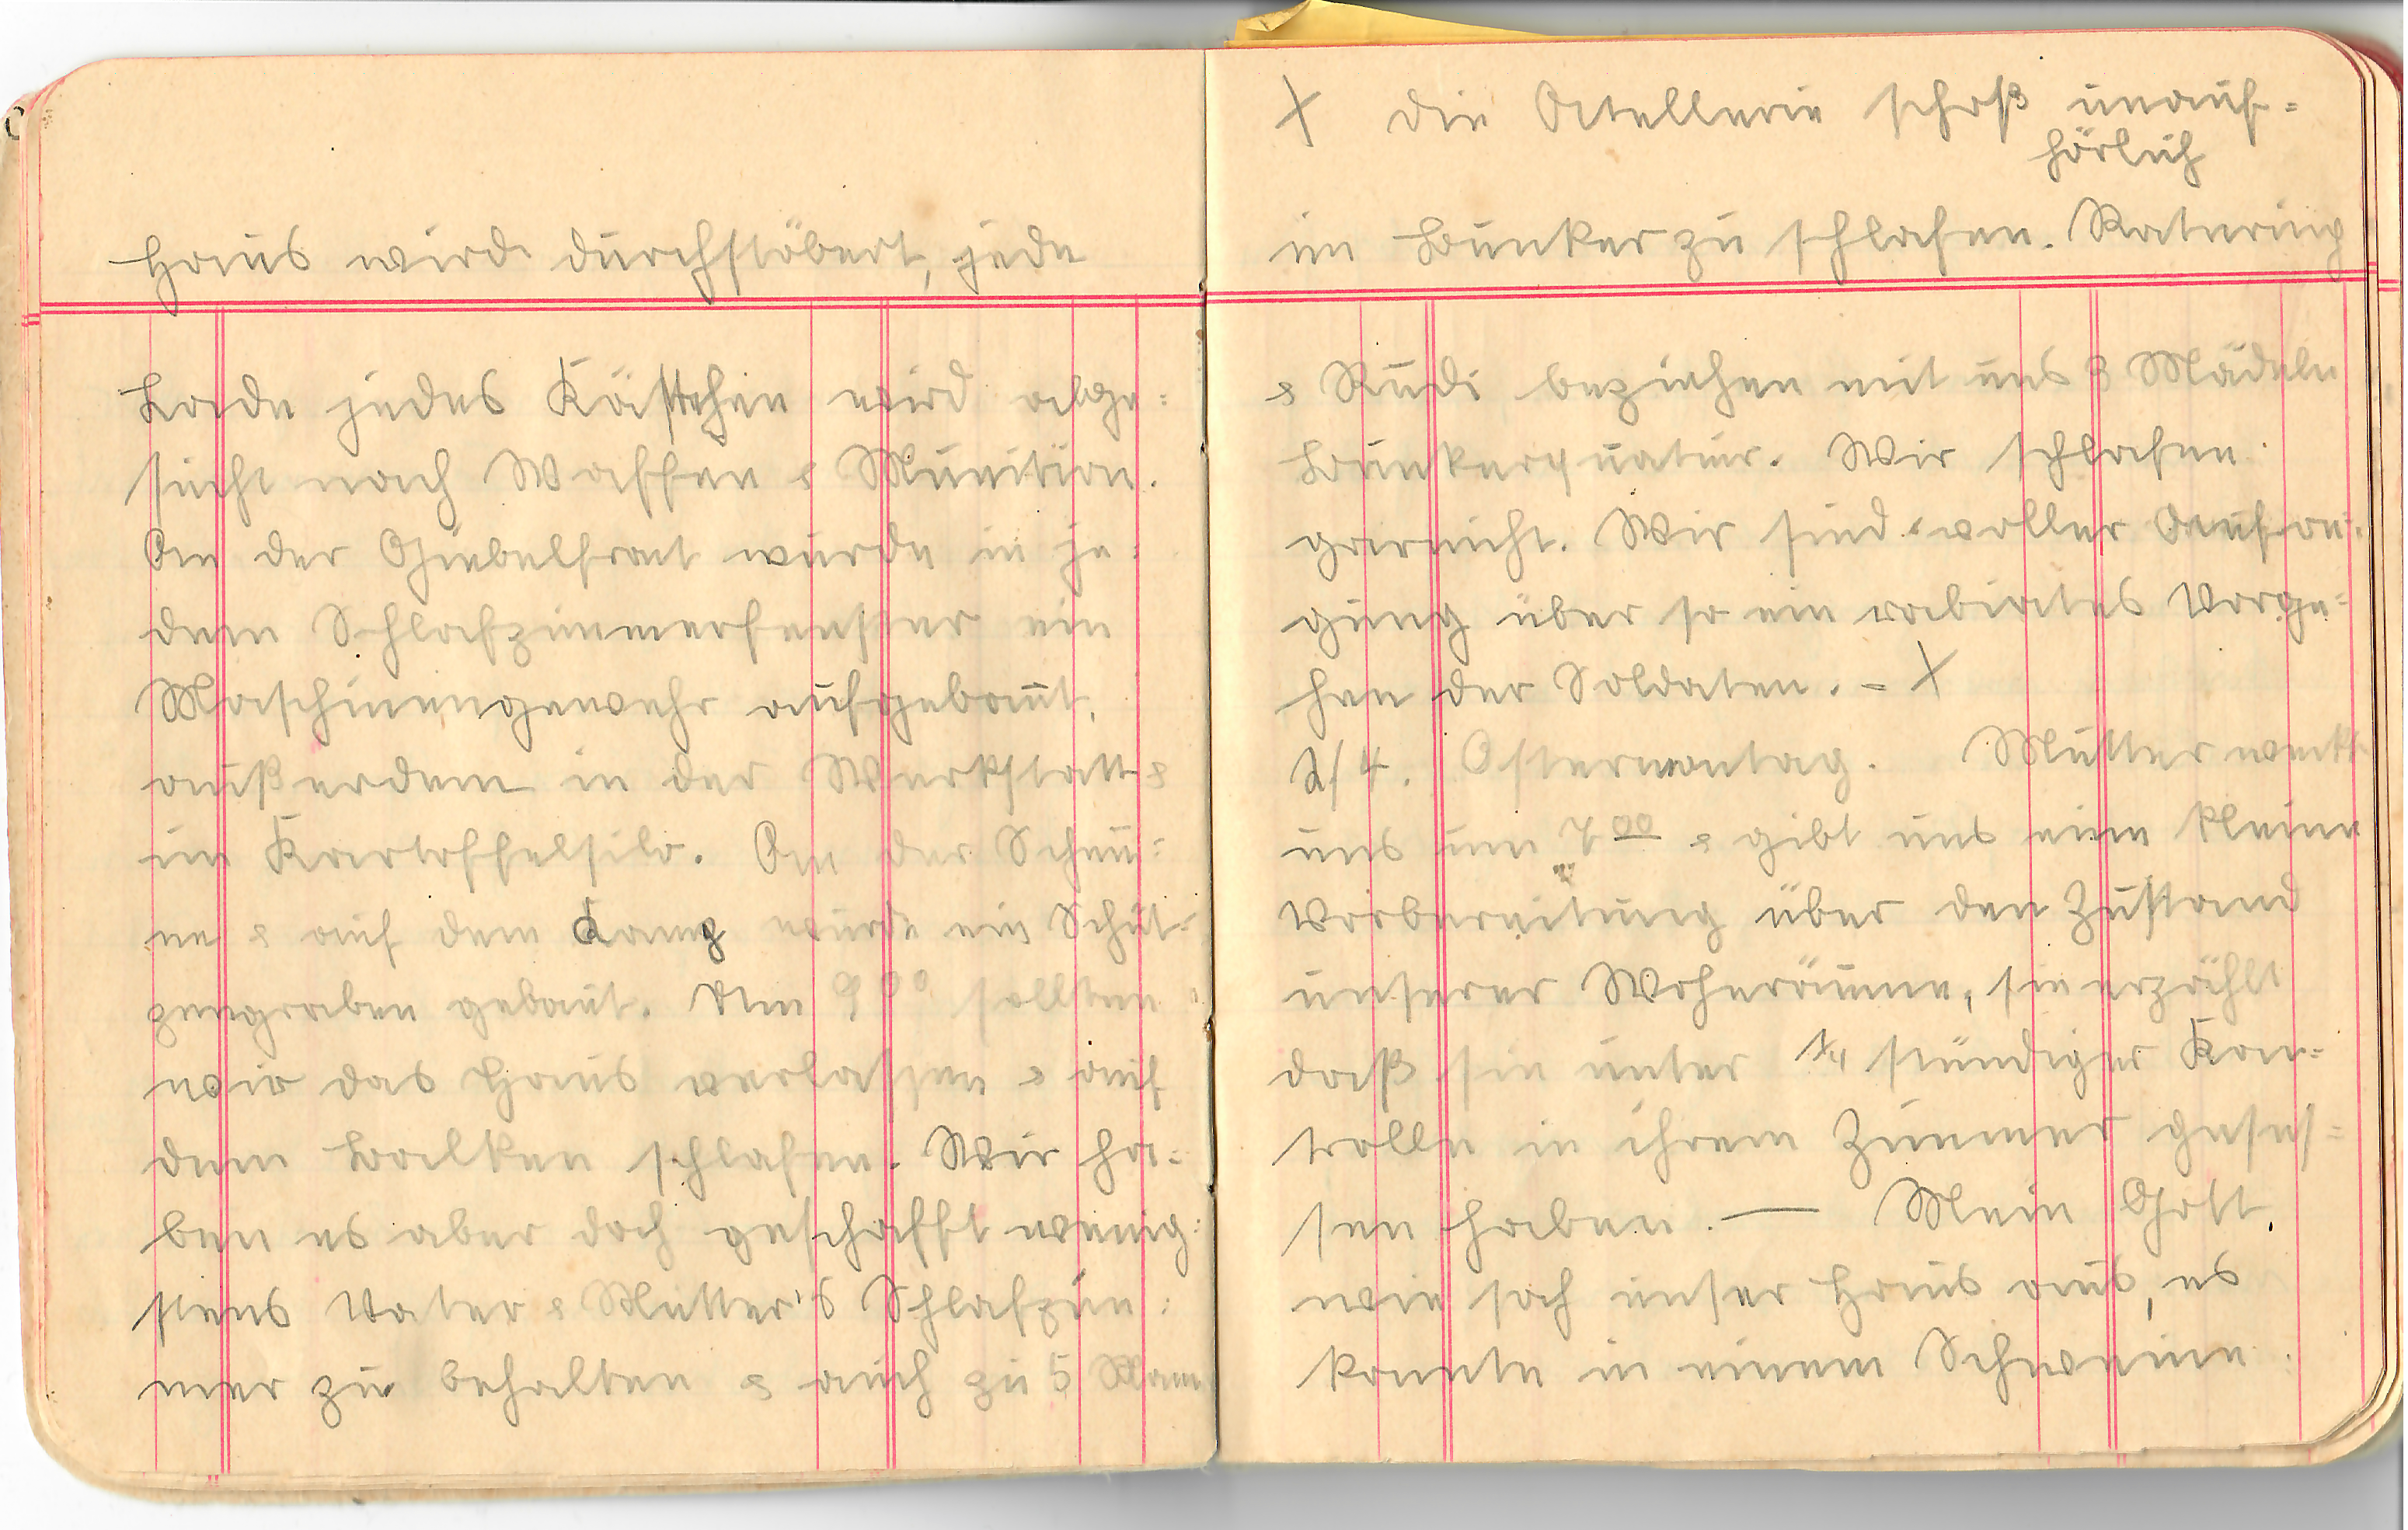 Haus wird durchstöbert, jede
Lade jedes Kästchen wird abge=
sucht nach Waffen & Munition.
An der Giebelfront wurde in je=
dem Schlafzimmerfenster ein
Maschinengewehr aufgebaut,
außerdem in der Werkstatt &
im Kartoffelsilo. An der Scheu=
ne & auf dem Kamp wurde ein Schüt=
zengraben gebaut. Um 9 00 sollten
wir das Haus verlassen & auf
dem Balken schlafen. Wir ha=
ben es aber doch geschafft wenig=
stens Vater & Mutter's Schlafzim=
mer zu behalten & auch zu 5 Mann
X Die Artellerie schoß unauf=
hörlich
im Bunker zu schlafen.
& Rudi beziehen mit uns 3 Mädeln
Bunkerquatier. Wir schlafen
garnicht. Wir sind voller Aufre=
gung über so ein rabiates Vorge=
hen der Soldaten. - X
2/4. Ostermontag. Mutter weckt
uns um 7 00 & gibt uns eine kleine
Vorbereitung über den Zustand
unserer Wohnräume, sie erzählt
daß sie unter 1/4 stündiger Kon=
trolle in ihrem Zimmer geses=
sen haben. — Mein Gott,
wie sah unser Haus aus, es
konnte in einem Schweine=